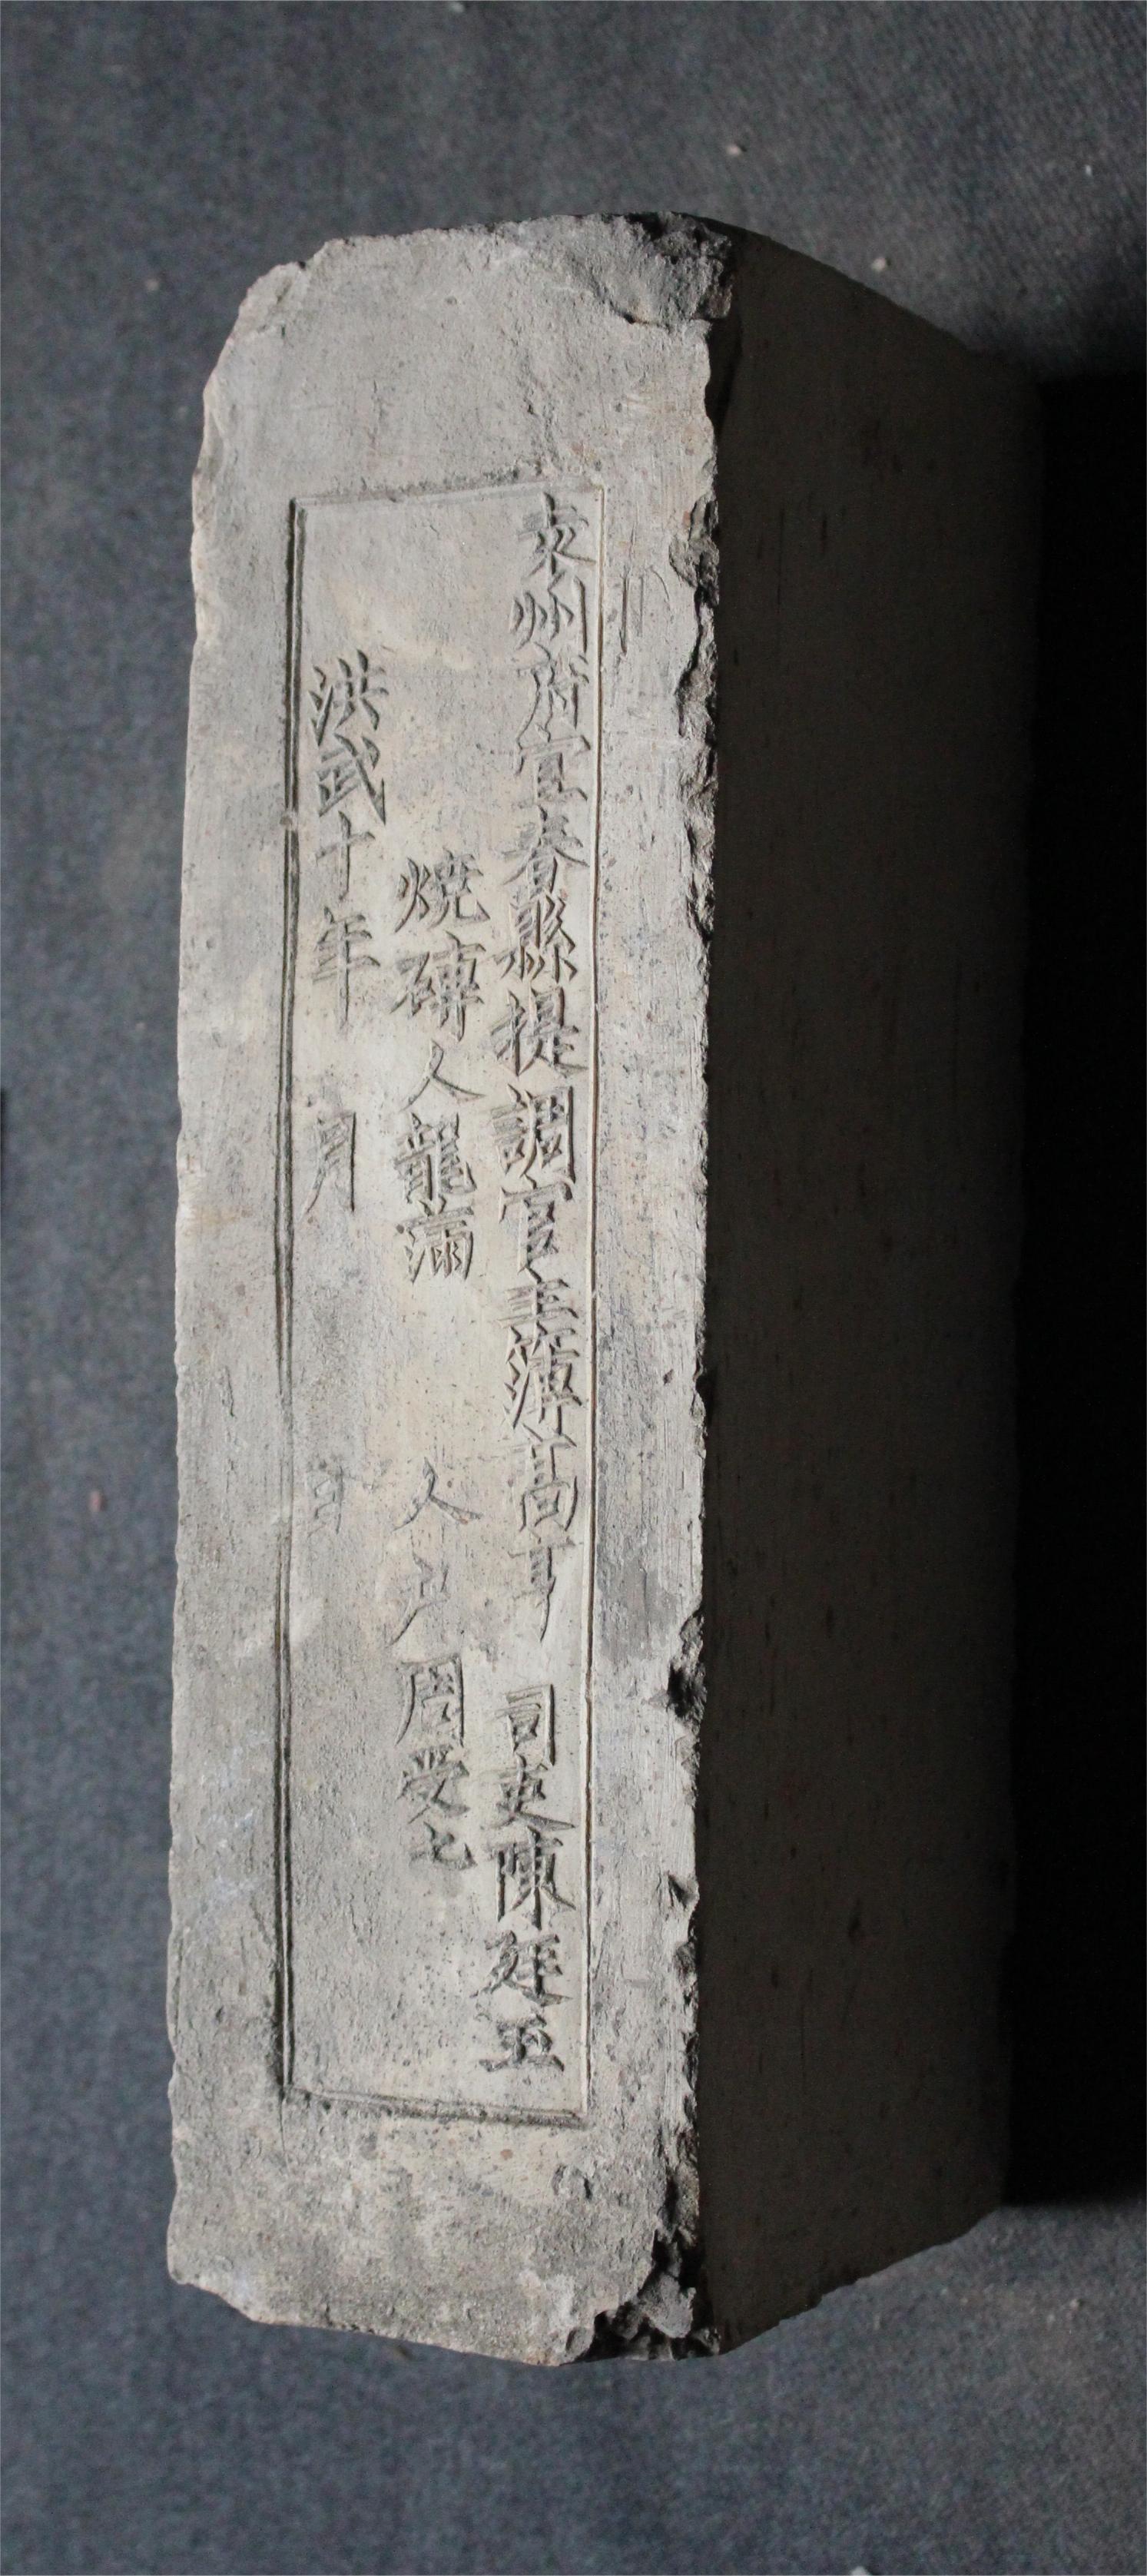 袁州府宜春縣提調官主簿高亨 司吏陳廷玉
燒磚人龍滿 人户周受七
洪武十年 月 日